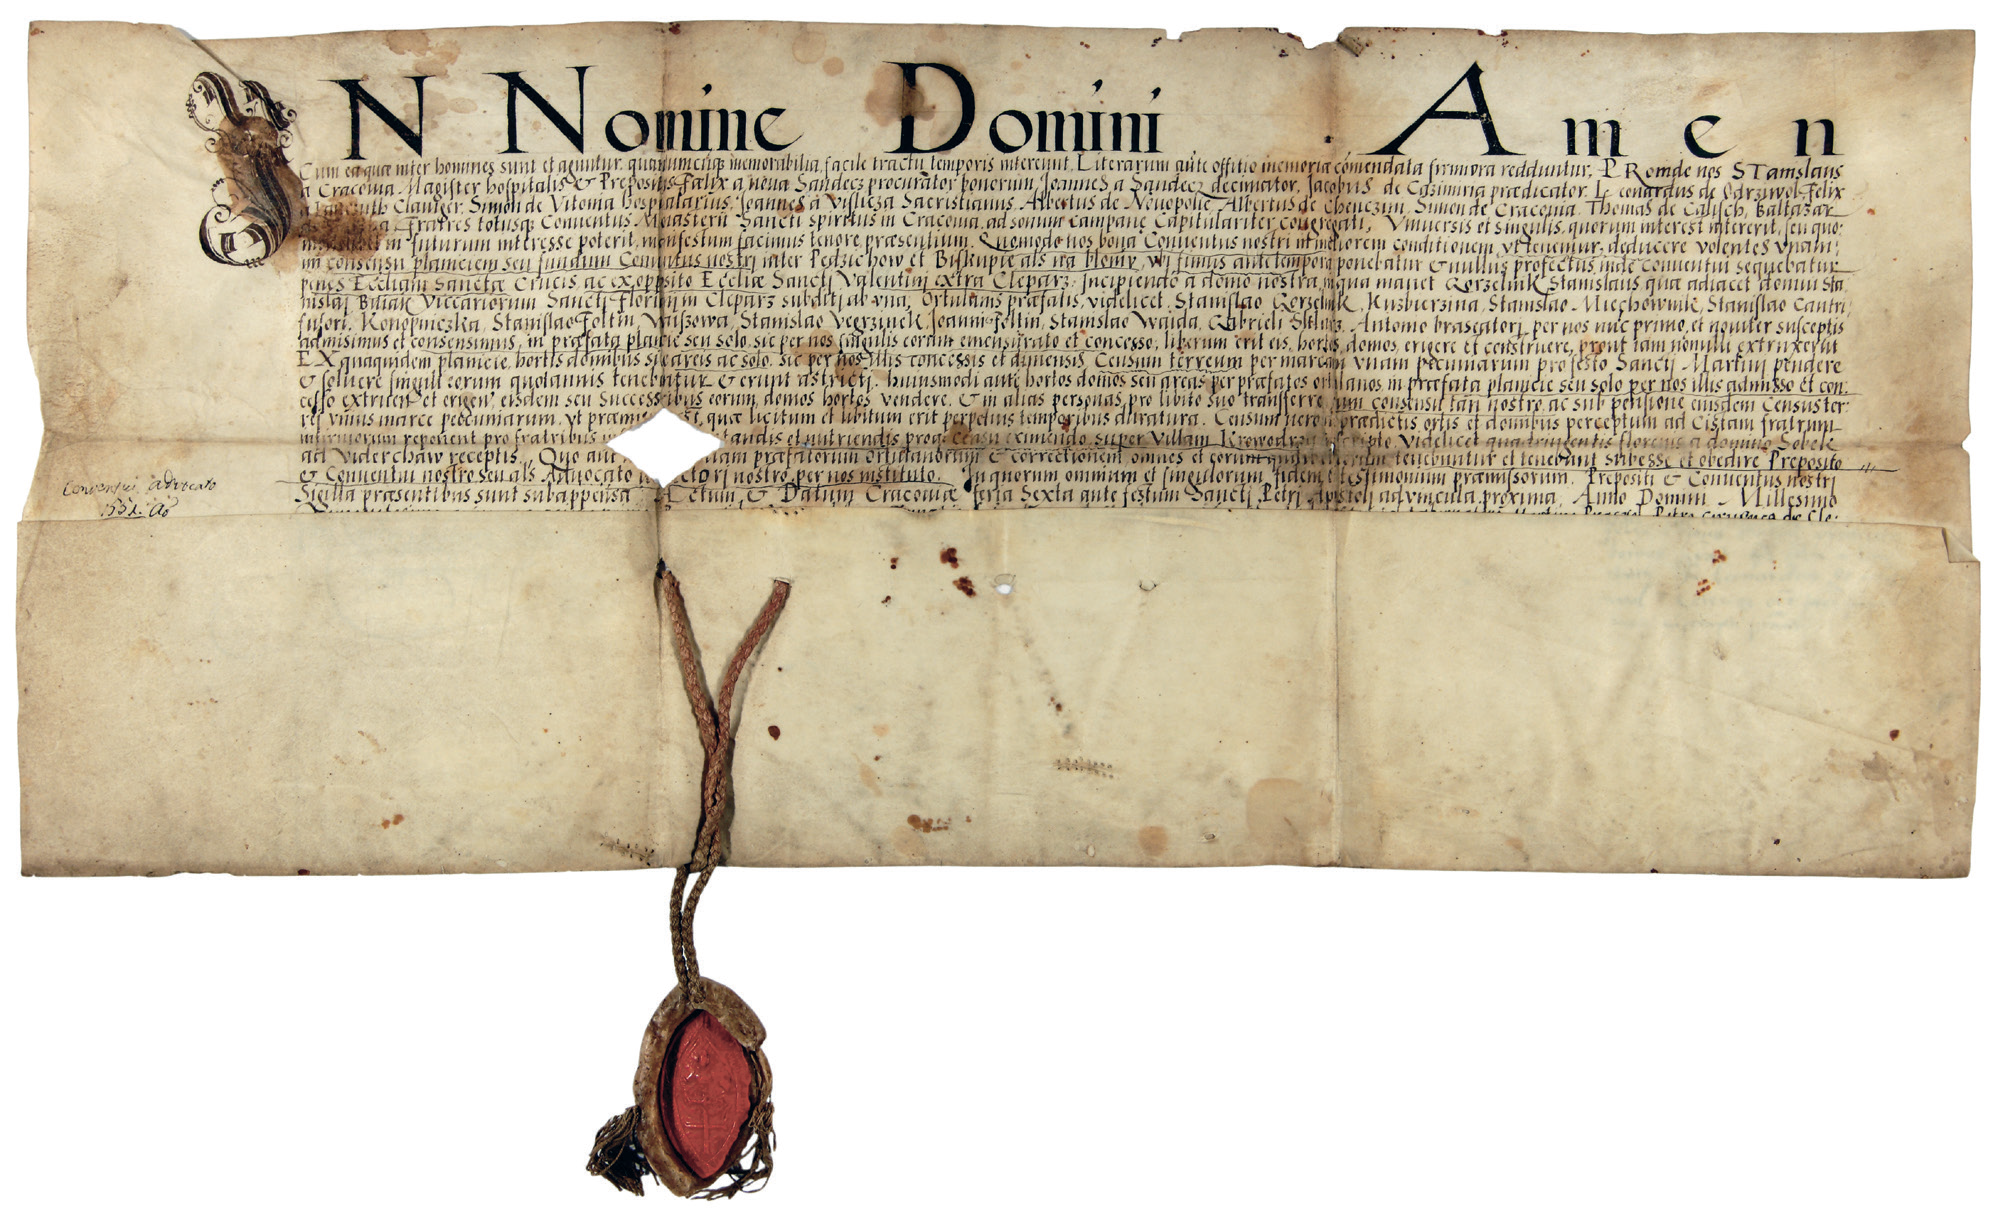 IN Nomine Domini Amen
Cum ea quæ inter homines sunt et aguntur, quantumcuq; memorabilia, facile tractu temporis intereunt, Literarum aute offitio memoria comendata firmiora redduntur, PRoinde nos STanislaus
a Cracovia Magister hospitalis & Prepositus, Fælix a nova Sandecz procurator bonorum, Joannes a Sandecz decimator, Jacobus de Cazimiria prædicator, Leonardus de Odrziwol, Felix
Clauiger, Simon de Vitonia hospitalarius, Joannes a Vislicza Sacristianus, Albertus de Novopolie, Albertus de Chenczini, Simon de Cracovia, Thomas de Calisch, Baltazar
Fratres totusq; Conventus Monasterii Sancti spiritus in Cracovia, ad sonum campane Capitulariter congregati, Vniversis et singulis, quorum interest intererit, seu quo-
in futurum interesse poterit, manifestum facimus tenore præsentium. Quomodo nos bona Conventus nostri in meliorem conditionem, vt tenemur, deducere volentes vnani-
mi consensu planiciem seu fundum Conventus nostri inter Pędzichow et Biskupie als na bloniv, vbi fimus ante tempora ponebatur & nullus profectus inde conventui sequebatur
penes Eccliam Sanctæ Crucis ac ex opposito Eccliæ Sancti Valentini extra Cleparz, incipiendo a domo nostra, in qua manet Gorzelnik Stanislaus quæ adiacet domui Sta-
nislai Vicariorum Sancti Floriani in Cleparz subditi ab vna, Ortulanis præfatis, videlicet, Stanislao Gorzelnik, Kuzbierzina, Stanislao Miechownik, Stanislao Cantri-
fusori, Konopniczka, Stanislao Foltin, Vaiszowa, Stanislao Vegrzinek, Joanni Foltin, Stanislao Waida, Gabrieli, Antonio brascatori, per nos nuc primo, et noviter susceptis
admisimus et consensimus, in præfata planicie seu solo, sic per nos singulis eorum emensurato et concesso, liberum erit eis, hortos, domos, erigere et construere, prout iam nonulli extruxerunt
EX quaquidem planicie, hortis domibus siue areis ac solo, sic per nos illis concessis et dimensis, Censum terreum per marcam vnam pecuniarum pro festo Sancti Martini pendere
& soluere singuli eorum quotannis tenebuntur & erunt astricti. huiusmodi aute hortos domos seu areas per præfatos ortulanos, in præfata planicie seu solo per nos illis admisso et con-
cesso extruent et erigent, eisdem seu Successoribus eorum, domos hortos vendere, & in alias personas, pro libito suo transferre, cum consensu tan nostro, ac sub pensione eiusdem Census ter-
rei vnius marce pecuniarum, vt præmis est, quæ licitum et libitum erit perpetuis temporibus duratura. Censum vero ex prædictis ortis et domibus perceptum ad Cistam fratrum
infirmorum reponent pro fratribus andis et nutriendis proq; censu eximendo, super Villam Krowodrza inscripto, videlicet quadringentis florenis a domino Sobek
ad Viderchaw receptis. Quo aut præfatorum Ortulanorum & correctionem omnes et eorum quilibet tenebuntur et tenebunt subesse et obedire Preposito
& Conventui nostro, seu als Advocato nostro, per nos instituto. In quorum omnium et singulorum fidem & testimonium præmissorum, Prepositi & Conventus nostri
Sigilla præsentibus sunt subappensa. Actum, & Datum Cracoviæ feria Sexta ante festum Sancti Petri Apostoli ad vincula proxima, Anno Domini Millesimo
Conventus advocato
1551 Ao